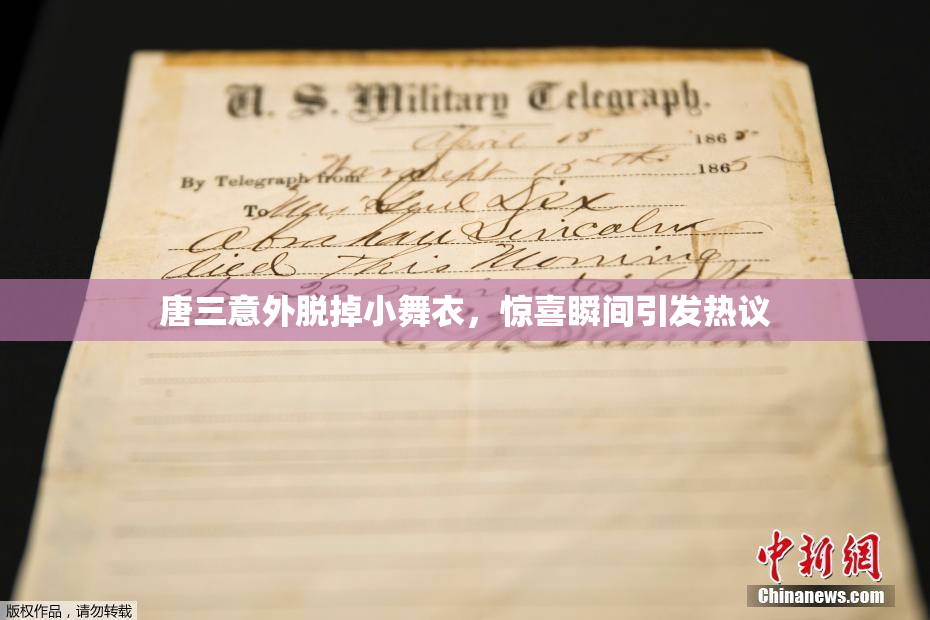 U. S. Military Telegraph.
April 15 1865
By Telegraph from War Dept 15th 1865
To Maj Genl Dix
Abraham Lincoln
died This Morning
22 minutes after
唐三意外脱掉小舞衣，惊喜瞬间引发热议
E. M. Stanton
中新网
Chinanews.com
版权作品，请勿转载